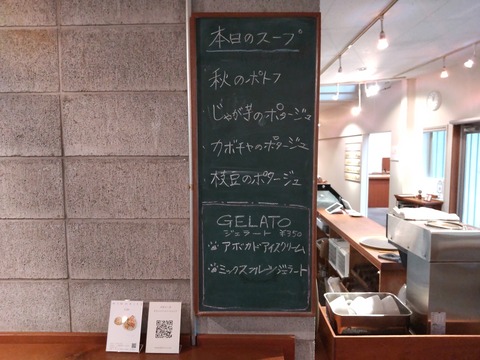 本日のスープ
秋のポトフ
じゃが芋のポタージュ
カボチャのポタージュ
枝豆のポタージュ
GELATO
ジェラート ¥350
アボカドアイスクリーム
ミックスフルーツジェラート